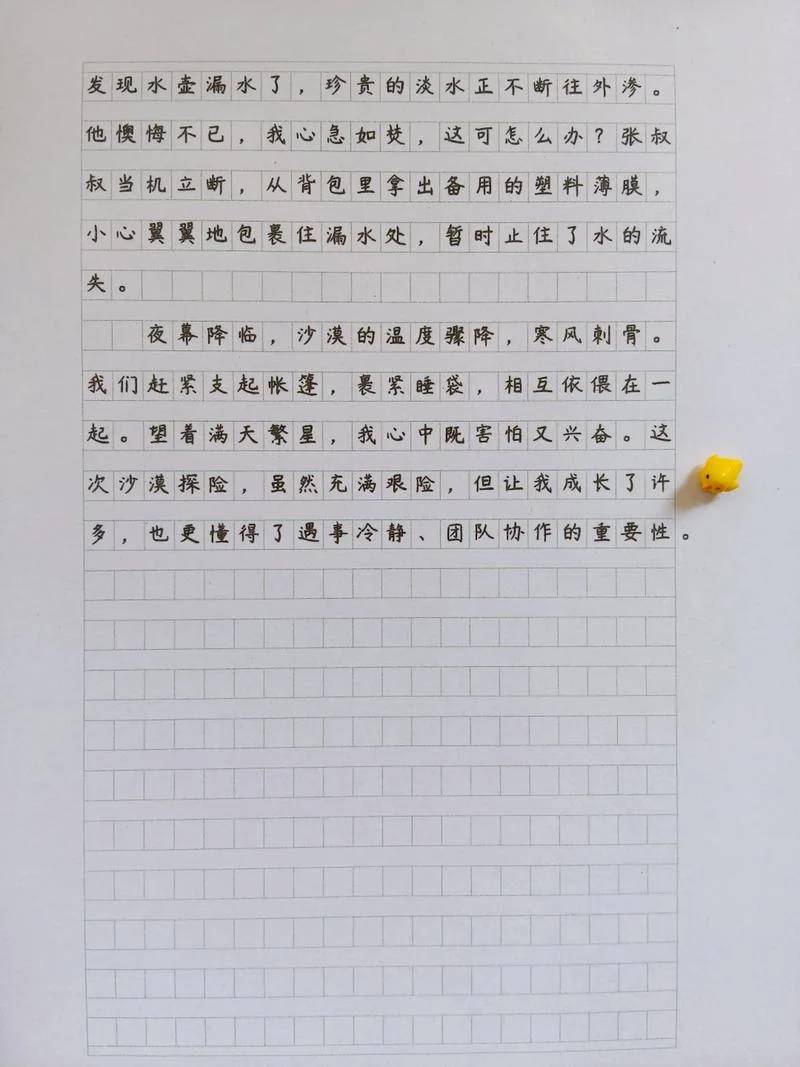 发现水壶漏水了，珍贵的淡水正不断往外渗。
他懊悔不已，我心急如焚，这可怎么办？张叔
叔当机立断，从背包里拿出备用的塑料薄膜，
小心翼翼地包裹住漏水处，暂时止住了水的流
失。
夜幕降临，沙漠的温度骤降，寒风刺骨。
我们赶紧支起帐篷，裹紧睡袋，相互依偎在一
起。望着满天繁星，我心中既害怕又兴奋。这
次沙漠探险，虽然充满艰险，但让我成长了许
多，也更懂得了遇事冷静、团队协作的重要性。